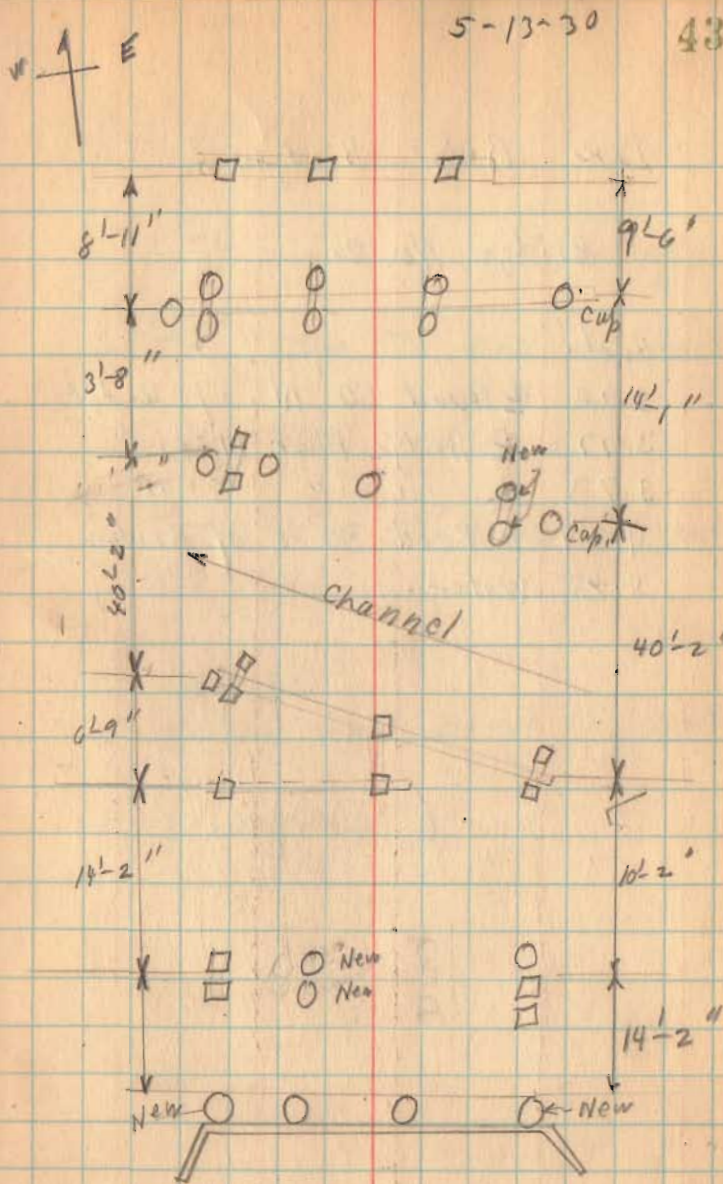 5-13-30 43
W E
8'-11" 9'-6"
Cup
3'-8" 14'-1"
New
Cap.
40'-2"
Channel
40'-2"
6'-9"
14'-2" 10'-2"
New
New
14'-2"
New New